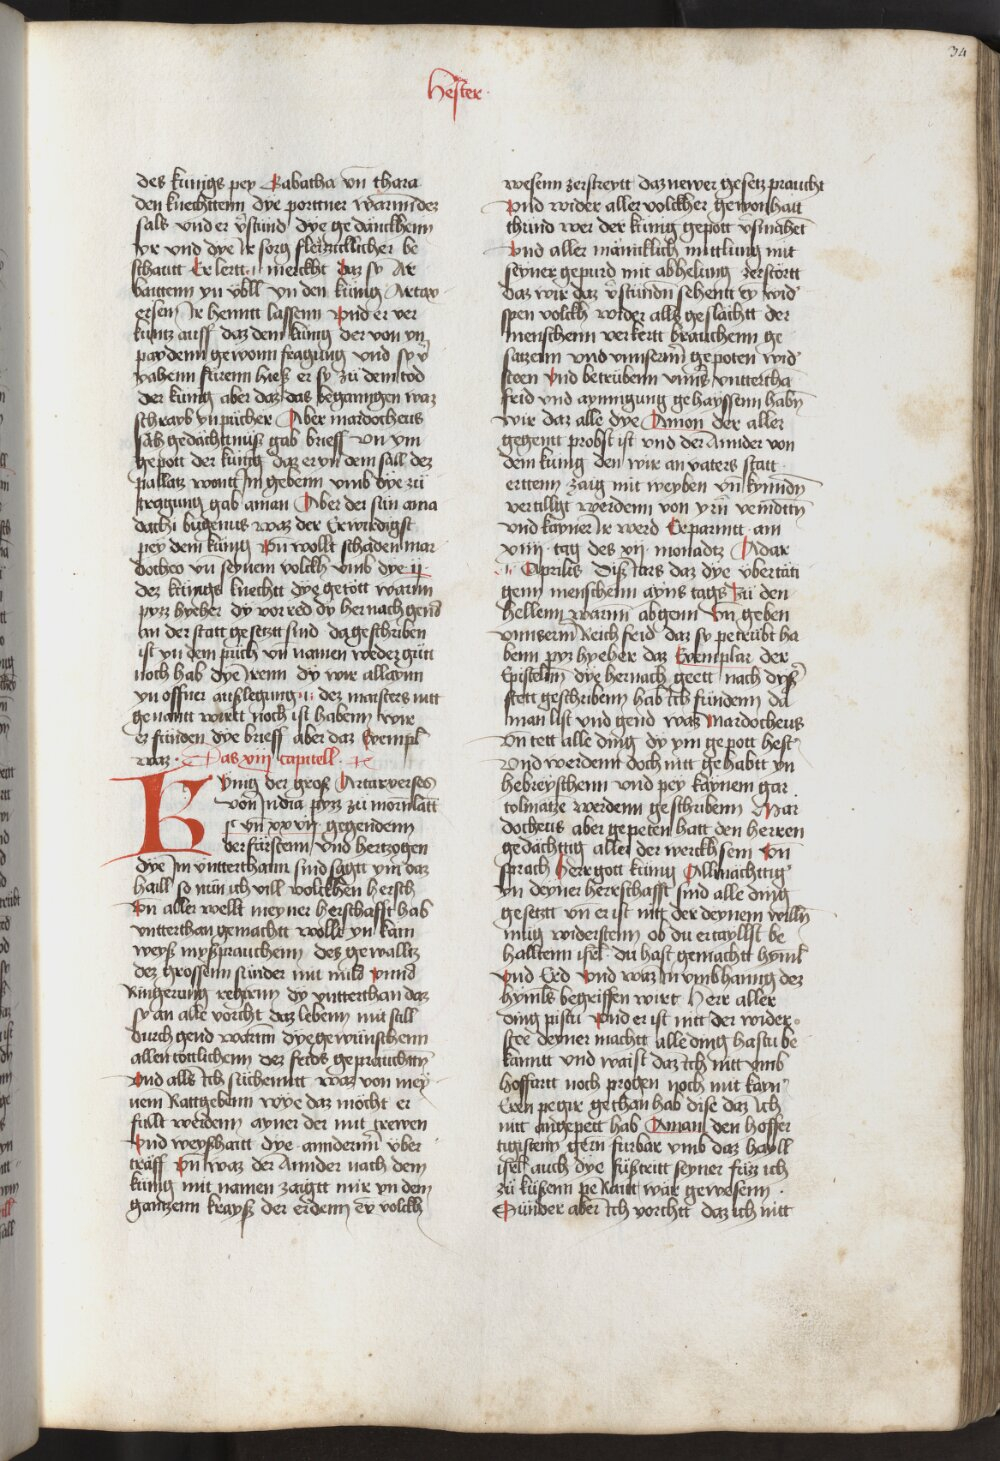 34
Hester
des kunigs pey Rabatha vn thara
den knechttenn dye porttner warnn dez
sals vnd er v̄stund dye gedanckhenn
yr vnd dye Ir sorg fleissicklicher be
schautt Er lertt merckht daz sy Ar
battenn yn vbll vn den kung Artax
ersen Ir henntt lassenn vnd er ver
kuntz auff daz dem kunig der von yn
paydenn gewonn fragung vnd sy v̄
iahenn furenn hieß er sy zu dem tod
der kunig aber daz das begangen waz
schrayb yn pucher Aber mardocheus
sach gedachtnuß gab brieff vn ym
gepott der kunig daz er yn dem sall dez
pallatz wontt Im gebenn vmb dye zu
tragung gab aman Aber der sun ama
dachi bugenus waz der Erwirdigst
pey dem kunig vn wollt schaden mar
docheo vn seynem volckh vmb dye ij
dez kunigs knecht dye getott warnn
pyzz hyeher dy vorred dy hernach gend
an der statt gesetztt sind da geschriben
ist yn dem puch yn namen wedez gutt
noch hab dye Irenn dy wir allaynn
yn offner auslegung dez maisters nitt
genantt wirtt noch ist habenn wir
er funden dye brieff aber daz Exempl
waz Das xiij capitell
Kunig der groß Artaxerses
von India pyzz zu mornlātt
c vn xxvij gegendenn
der furstenn vnd hertzogen
dye Im vntterthann sind sagtt ym daz
haill so nun ich vil volckhen hersch
vn aller wellt meyner herschafft hab
vntterthan gemachtt wolltt yn kain
weyß myßprauchenn des gewalltz
dez grossenn sunder mit mild vnnd
Ringerung regyrnn dy vntterthan daz
sy an alle vorcht daz lebenn mit still
durch gend warnn dye gewunschenn
allen tottlichenn dez frids geprauchttn
vnd alls Ich suchenntt waz von mey
nem Rattgebenn wye daz mocht er
fullt werdenn ayner der mit trewen
vnd weyßhaitt dye anndernn vber
traff vn waz der Annder nach dem
kunig mit namen zaigtt mir yn dem
gantzenn krayß der erdenn ey volckh
wesenn zerstreytt daz newer gesetz praucht
vnd wider aller volckher gewonhaitt
thund wer der kunig gepott v̄smachet
vnd aller manicklich mittlung mit
seyner gepurd mit abhelung zerstortt
daz wir daz v̄stundn sehentt ey wid
spen volckh wider alls geslachtt der
menschenn verkertt brauchenn ge
satzenn vnd vnnsernn gepoten wid
steen vnd betrubenn vnns vnttertha
frid vnd aynnigung gehayssenn habn
wir daz alle dye Amon der aller
gegentt probst ist vnd der Annder von
dem kunig den wir an vaters statt
erttenn zaig mit weyben vn kynndn
vertillgt werdenn von yrn veindttn
vnd kayner Ir werd Erparmtt am
xiiij tag des xij monadtz Adar
Aprilis diß Iars daz dye vbertati
genn menschenn ayns tags zu den
hellenn warnn abgenn vn geben
vnnserm Reich frid daz sy petrubt ha
benn pyz hyeher daz Exemplar der
Epistelnn dye hernach geett nach dyß
stett geschribenn hab Ich fundenn da
man list vnd gend waz Mardocheus
vn tett alle ding dy ym gepott hest
vnd werdentt doch nitt gehabtt yn
hebreyschenn vnd pey kaynem gar
tolmatze werdenn geschribenn Mar
docheus aber gepeten hatt den herren
gedachttig aller der werckh sein vn
sprach Herr gott kunig Allmachttig
yn deyner herrschafft sind alle ding
gesetztt vn er ist nitt der deynem willn
mug widerstenn ob du ertayllst be
halltenn isrl du hast gemachtt hyml
vnd Erd vnd waz In vmbhanng dez
hymls begriffen wirt Herr aller
ding pistu vnd er ist nitt der wider
stee deyner machtt alle ding hastu be
kanntt vnd waist daz Ich nitt vmb
hoffartt noch progen noch mit kayn
Eren pegir gethan hab dise daz Ich
nitt angepett hab Aman den hoffer
tigisten gern furbar vmb daz hayll
isrl auch dye fußtritt seyner fuzz ich
zu kußenn peRaitt war gewesenn
Sunder aber Ich vorchtt daz ich nitt